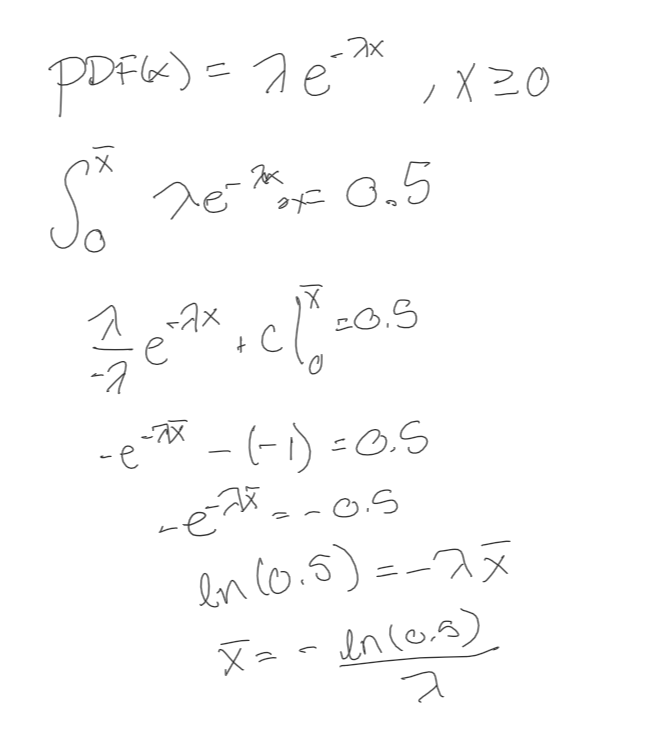 PDF(x) = λe^{-λx}, x ≥ 0
∫_0^{x̄} λe^{-λx} = 0.5
λ/-λ e^{-λx} + c |_0^{x̄} = 0.5
-e^{-λx̄} - (-1) = 0.5
-e^{-λx̄} = -0.5
ln(0.5) = -λx̄
x̄ = - ln(0.5)/λ